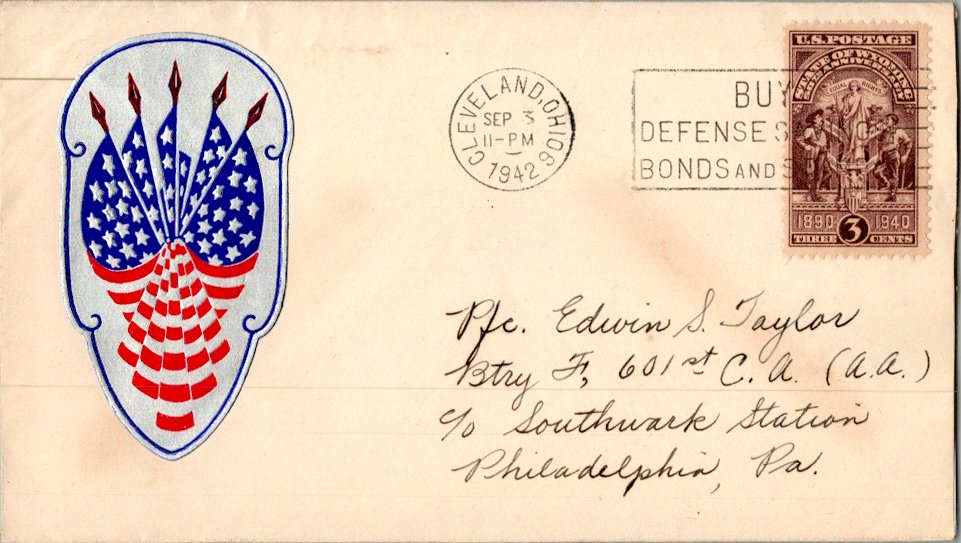 CLEVELAND, OHIO 6
SEP 3
11-PM
1942
BUY
DEFENSE S
BONDS AND S
U.S. POSTAGE
STATE OF WYOMING
50TH ANNIVERSARY
EQUAL RIGHTS
1890 1940
THREE 3 CENTS
Pfc. Edwin S. Taylor
Btry F, 601st C.A. (A.A.)
c/o Southwark Station
Philadelphia, Pa.